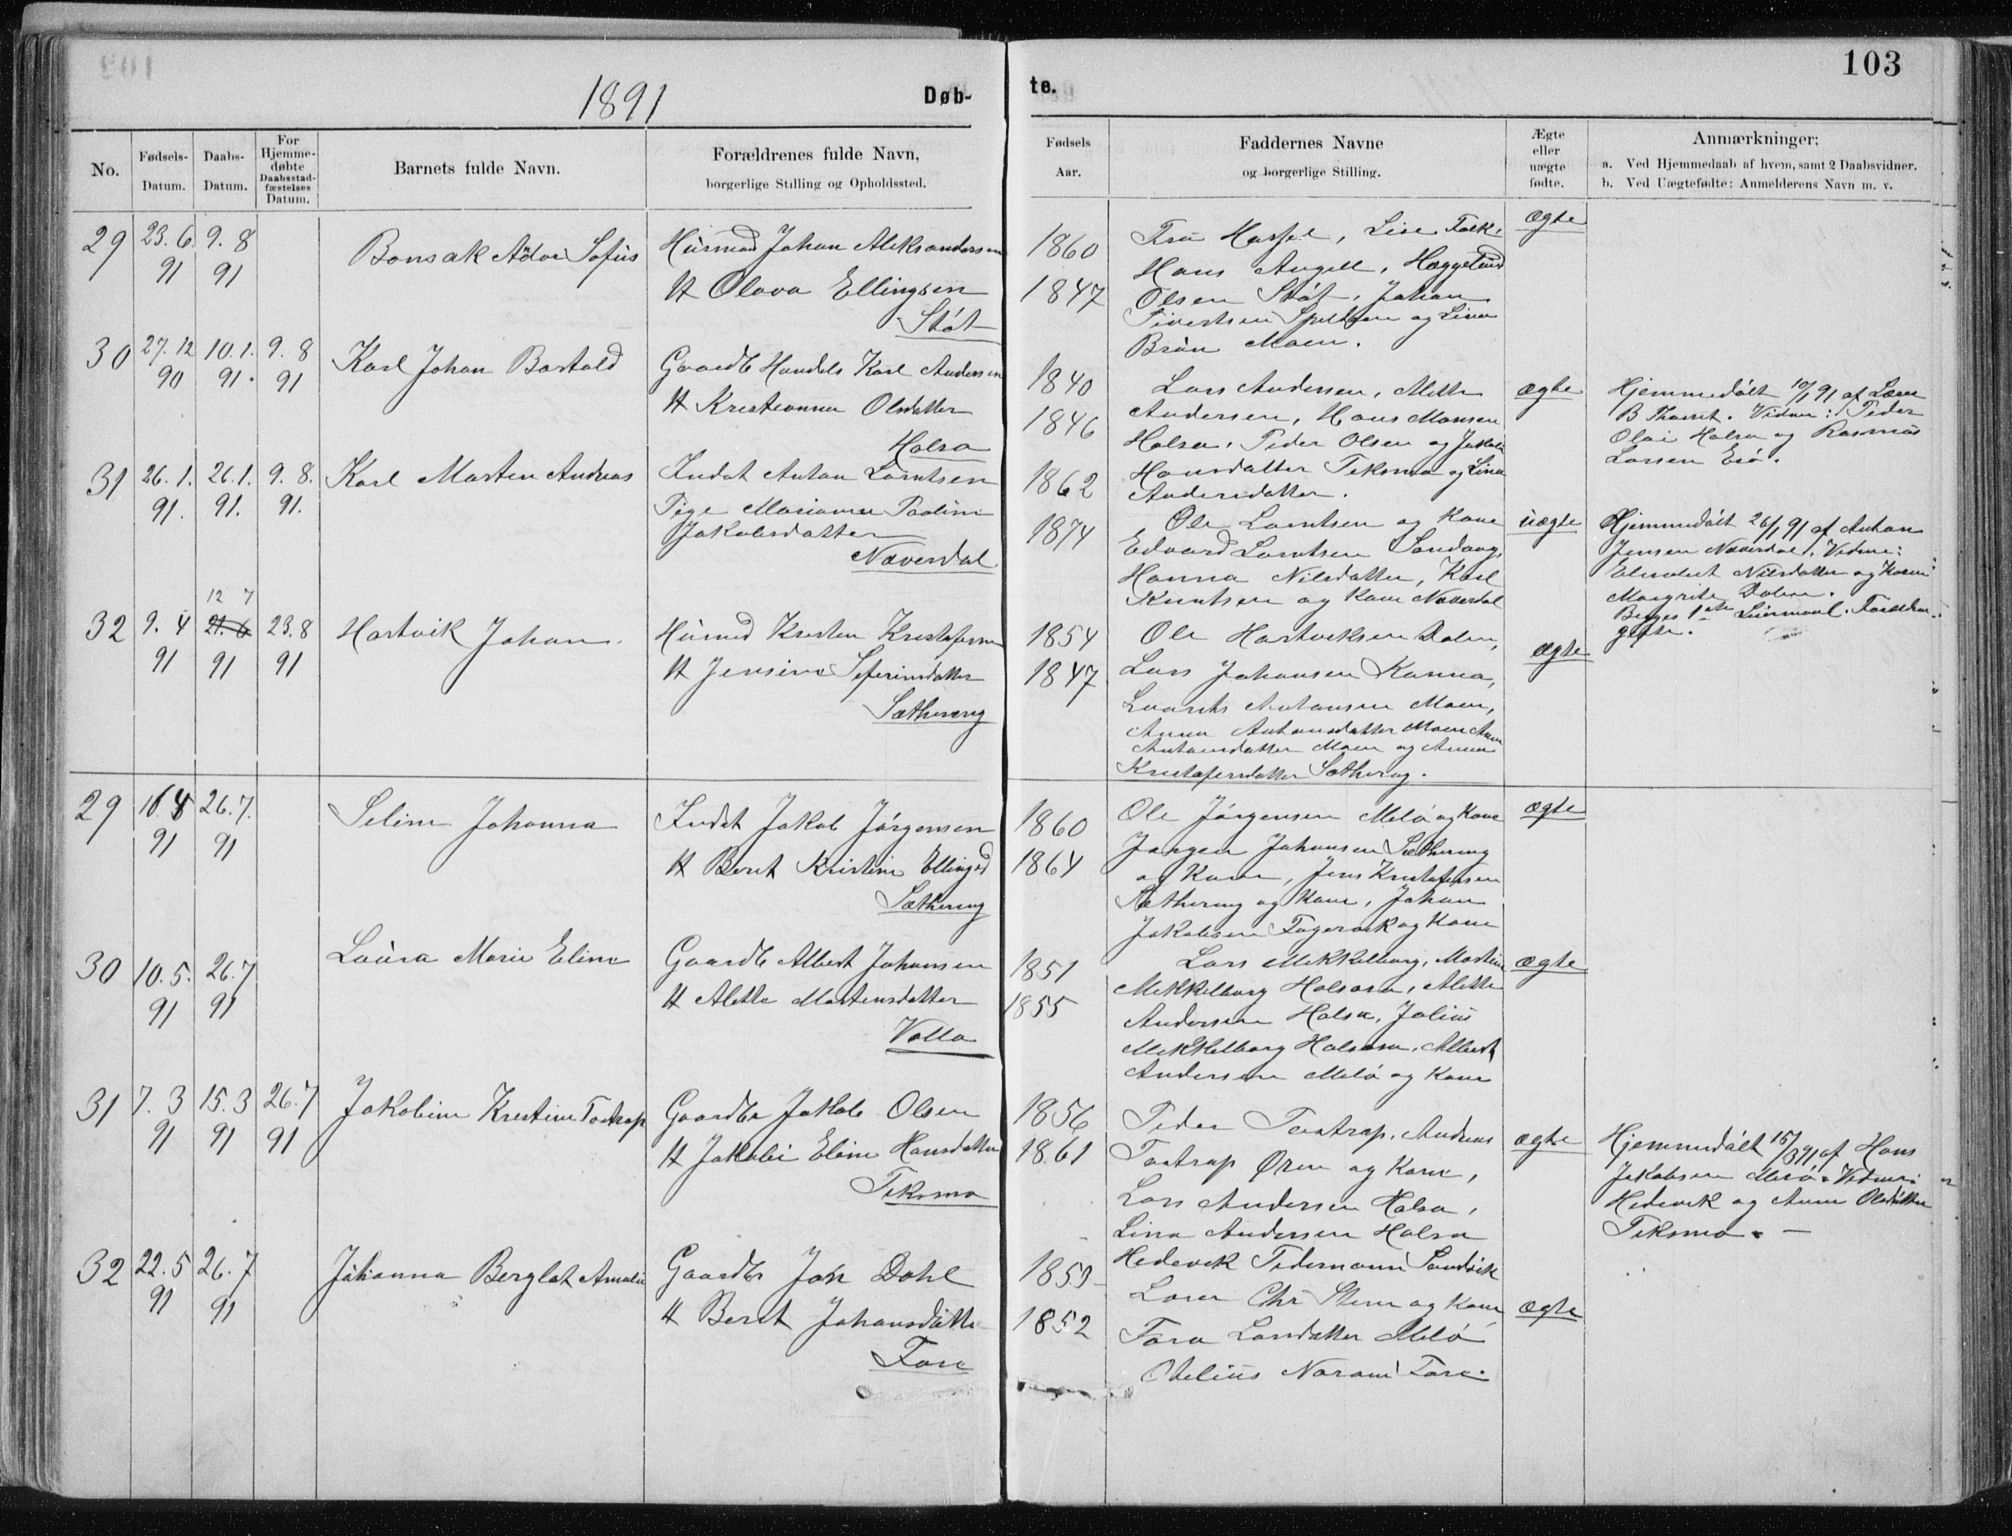 103
1891
Døb-
te.
No.
Fødsels-
Datum.
Daabs-
Datum.
For
Hjemme-
døbte
Daabsstad-
fæstelses
Datum.
Barnets fulde Navn.
Forældrenes fulde Navn,
borgerlige Stilling og Opholdssted.
Fødsels
Aar.
Faddernes Navne
og borgerlige Stilling.
Ægte
eller
uægte
fødte.
Anmærkninger:
a. Ved Hjemmedaab af hvem, samt 2 Daabsvidner.
b. Ved Uægtefødte: Anmelderens Navn m. v.
29 23.6 9.8
91 91
Bonsak Sofus
Husmd Johan Aleksandersen
H Olava Ellingsen
Støt
1860
1847
Fru Lise
Hans Angell,
Olsen Støt, Johan
Sivertsen og Lina
Brun Moen.
ægte
30 27.12 10.1. 9.8
90 91. 91
Karl Johan Bartold
Gaardbr Handels Karl Andersen
H Kristianna Olsdatter
Halsa
1840
1846
Lars Andersen, Mette
Andersen, Hans Monsen
Halsa, Peder Olsen og
Hansdatter Teksmo og Lina
Andersdatter.
ægte
Hjemmedøbt 10/1 91 af Lærer
B Thoret. Vidner: Peder
Olai Halsa og Rasmus
Larsen
31 26.1. 26.1. 9.8.
91. 91. 91.
Karl Morten Andreas
Indst Anton Lorntsen
Pige Marianna Paoline
Jakobsdatter
Næverdal
1862
1874
Ole Lorntsen og Kone
Edvard Lorntsen
Hanna Nilsdatter, Karl
Knutsen og Kone Næverdal
uægte
Hjemmedøbt 26/1 91 af Anton
Jensen Næverdal. Vidner:
Elisabet Nilsdatter og Karen
Margrite Dalen.
Begges 1ste Leiermaal.
gifte.
32 9.4 12 7 21.6 23.8
91 91 91
Hartvik Johan.
Husmd Kristen Kristofersen
H Jensine Seferinsdatter
Sætherng
1854
1847
Ole Hartviksen Dalen,
Lars Johansen Kanna,
Antonsen Moen,
Anna Antonsdatter Moen Anne
Antonsdatter Moen og Anne
Kristofersdatter Sætherng.
ægte
29 26.7.
91 91
Seline Johanna
Indst Jakob Jørgensen
H Beret Kristine Ellingsd
Sætherng
1860
1864
Ole Jørgensen Melø og Kone
Jørgen Johansen Sætherng
og Kone, Jens Kristofersen
Sætherng og Kone, Johan
Jakobsen Fagervik og Kone
ægte
30 10.5. 26.7
91 91
Laura Marie Eline
Gaardb Albert Johansen
H Alette Mortensdatter
Valla
1851
1855
Lars Mikkelborg, Martin
Mikkelborg Halsosen, Alette
Andersen Halsa, Julius
Mikkelborg Halsosen, Albert
Andersen Melø og Kone
ægte
31 7.3 15.3 26.7
91 91 91
Jakobine Kristine Tostrup
Gaardbr Jakob Olsen
H Jakobi Eline Hansdatter
Teksmo
1856
1861
Peder Tostrup, Andreas
Tostrup Øren og Kone,
Lars Andersen Halsa,
Lina Andersen Halsa
ægte
Hjemmedøbt 15/3 91 af Hans
Jakobsen Melø. Vidner:
Hedevik og Anne Olsdatter
Teksmo. —
32 22.5 26.7
91 91
Johanna Berglot Amalie
Gaardbr Joh Dahl
H Beret Johansdatter
Fore
1859
1852
Hedevik Pedermann Sandvik
Lærer Chr Steen og Kone
Tora Larsdatter Melø
Fore.
ægte